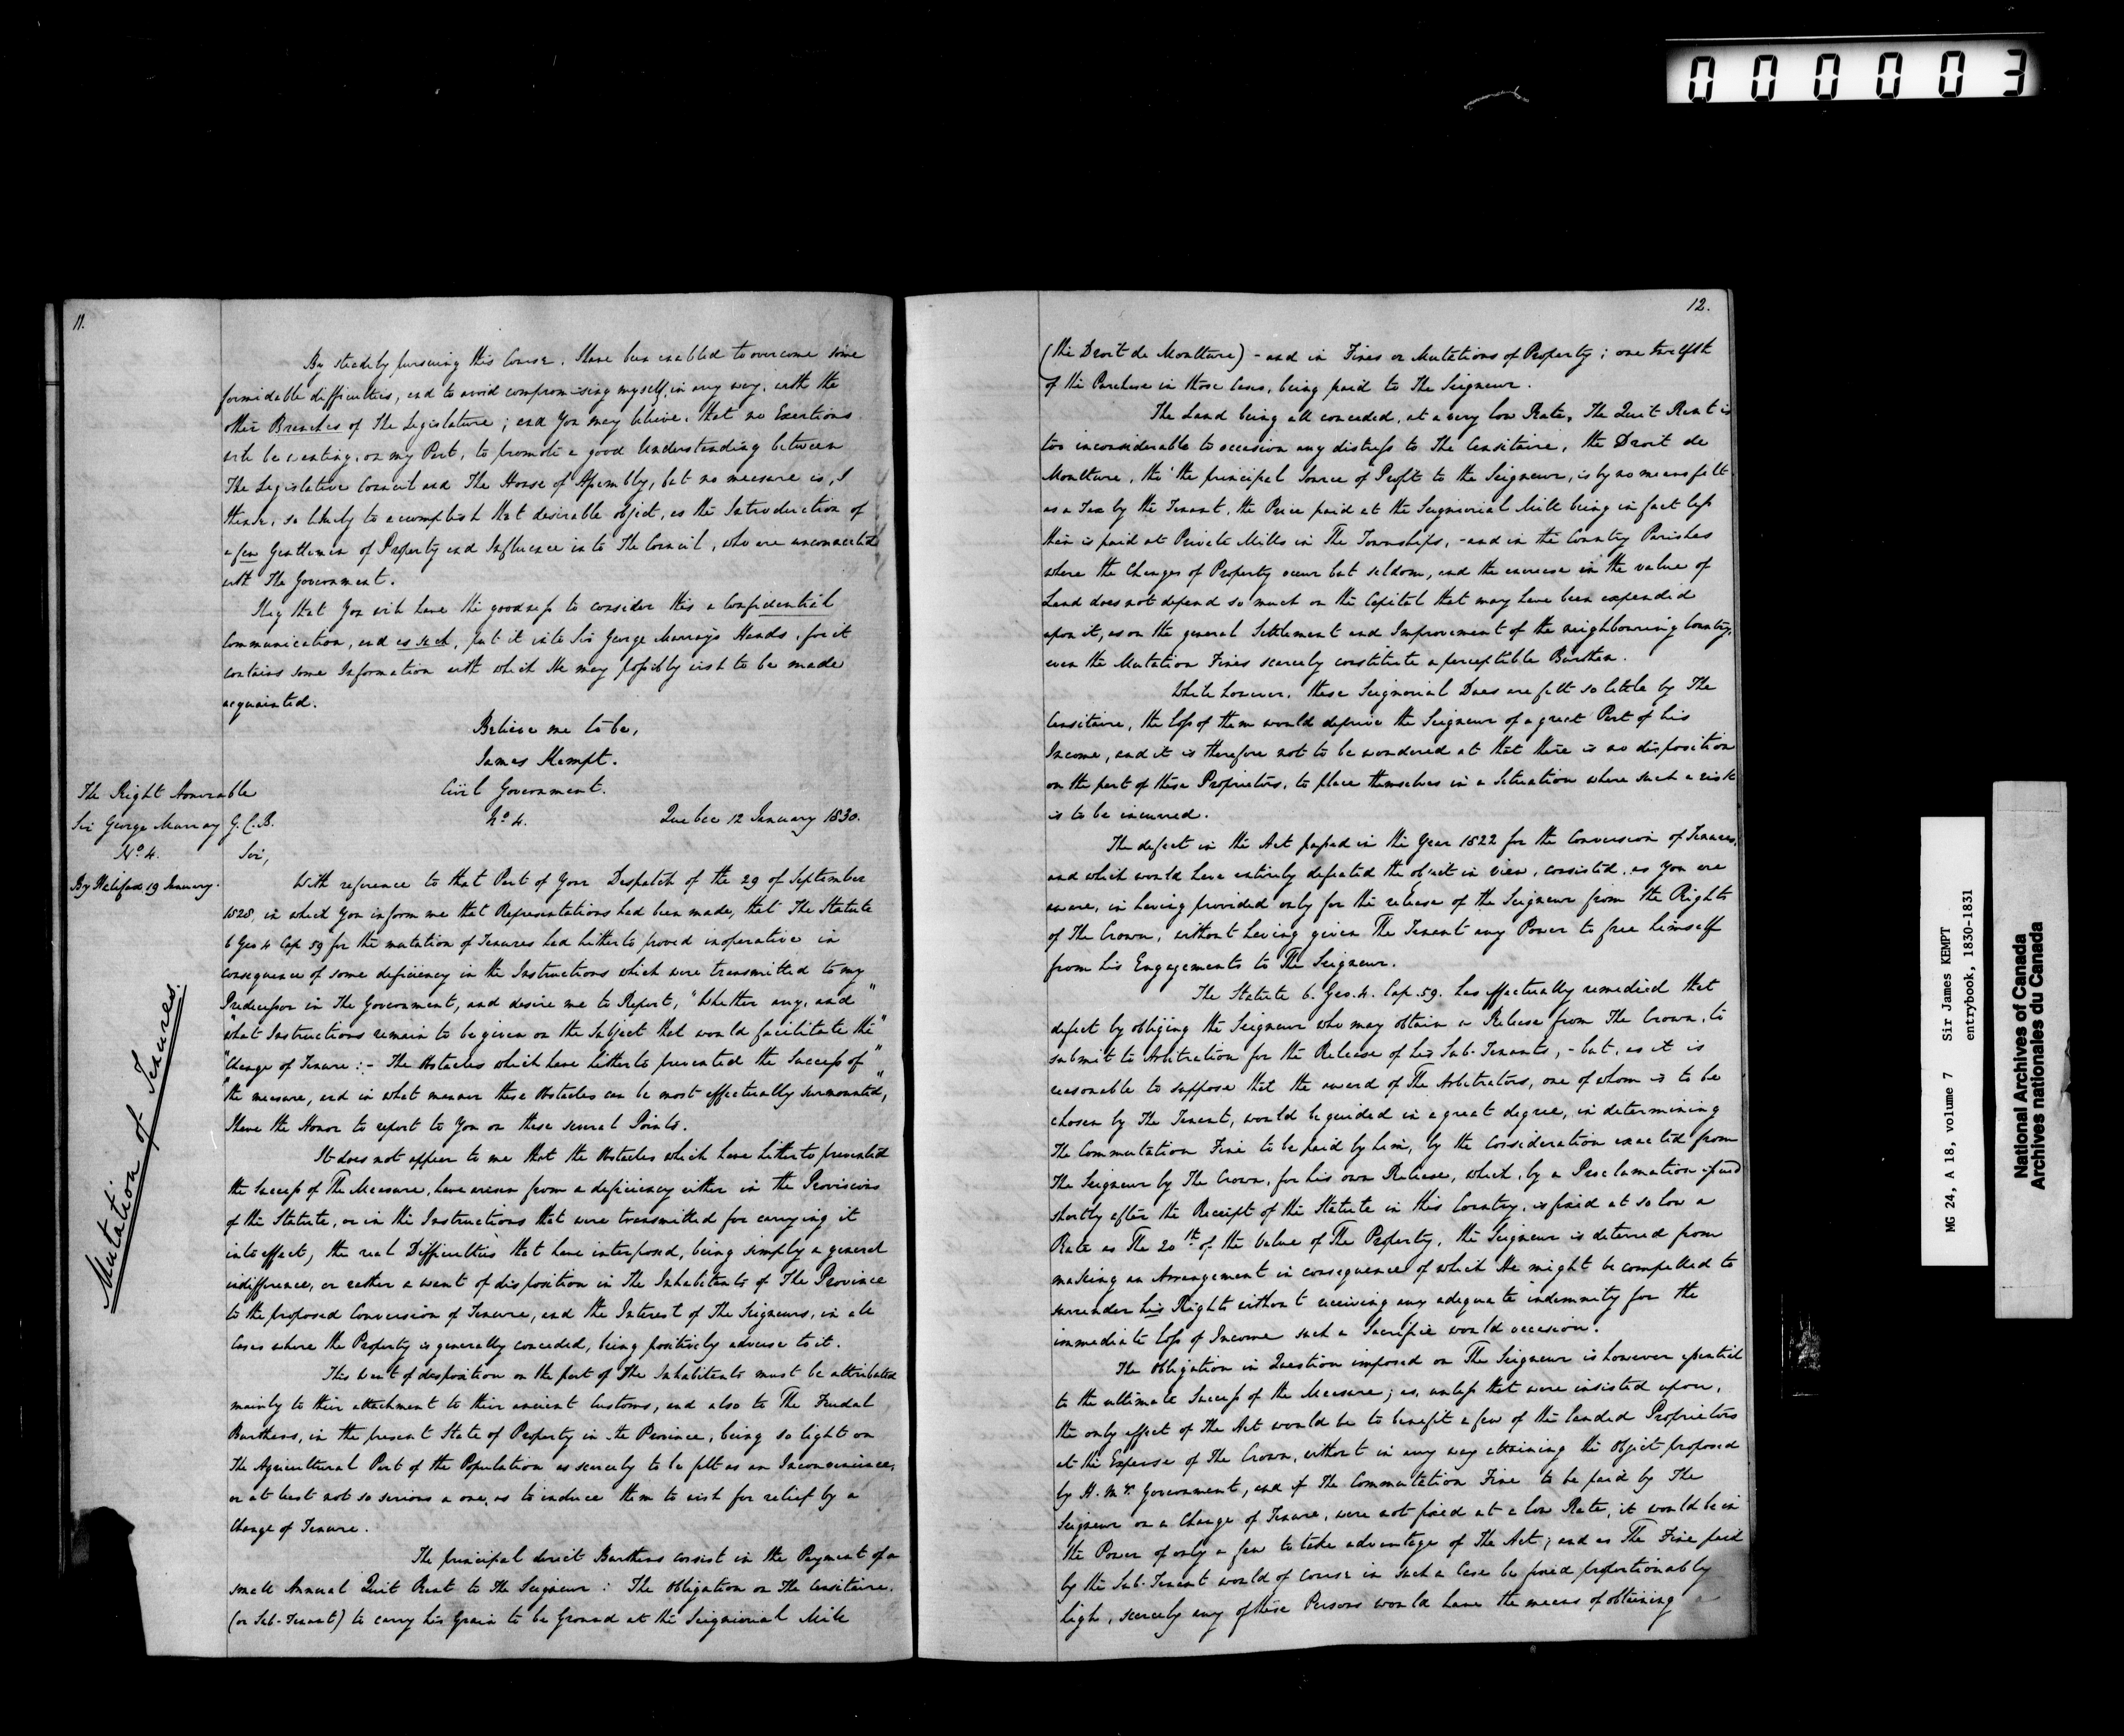 000003
11.
By steadily pursuing this Course, I have been enabled to overcome some
formidable difficulties, and to avoid compromising myself, in any way, with the
other Branches of The Legislature; and You may believe, that no Exertions
will be wanting, on my Part, to promote a good Understanding between
The Legislative Council and The House of Assembly, but no measure is, I
think, so likely to accomplish that desirable object, as the Introduction of
a few Gentlemen of Property and Influence into The Council, who are unconnected
with The Government.
I beg that You will have the goodness to consider this a Confidential
Communication, and as such, put it into Sir George Murray's Hands, for it
contains some Information with which He may possibly wish to be made
acquainted.
Believe me to be,
James Kempt.
The Right Honorable
Sir George Murray G.C.B.
No. 4.
By Halifax 19 January.
Mutation of Tenures.
Civil Government.
No. 4. Quebec 12 January 1830.
Sir,
With reference to that Part of Your Despatch of the 29 of September
1828, in which You inform me that Representations had been made, that The Statute
6 Geo 4 Cap 59 for the mutation of Tenures had hitherto proved inoperative in
consequence of some deficiency in the Instructions which were transmitted to my
Predecessor in The Government, and desire me to Report, "Whether any, and"
"what Instructions remain to be given on the Subject that would facilitate the"
"Change of Tenure:- The Obstacles which have hitherto prevented the Success of"
"the measure, and in what manner these Obstacles can be most effectually surmounted,"
I have the Honor to report to You on these several Points.
It does not appear to me that the Obstacles which have hitherto prevented
the Success of The Measure, have arisen from a deficiency either in the Provisions
of the Statute, or in the Instructions that were transmitted for carrying it
into effect, the real Difficulties that have interposed, being simply a general
indifference, or rather a want of disposition in The Inhabitants of The Province
to the proposed Conversion of Tenure, and the Interest of The Seigneurs, in all
Cases where the Property is generally conceded, being positively adverse to it.
This want of disposition on the part of The Inhabitants must be attributed
mainly to their attachment to their ancient Customs, and also to The Feudal
Burthens, in the present State of Property in the Province, being so light on
The Agricultural Part of the Population as scarcely to be felt as an Inconvenience,
or at least not so serious a one, as to induce them to wish for relief by a
Change of Tenure.
The principal direct Burthens consist in the Payment of a
small Annual Quit Rent to The Seigneur: The Obligation on The Censitaire,
(or Sub-Tenant) to carry his Grain to be Ground at the Seigniorial Mill
12.
(the Droit de Moulture) - and in Fines on Mutations of Property; one twelfth
of the Purchase in those Cases, being paid to The Seigneur.
The Land being all conceded, at a very low Rate, The Quit Rent is
too inconsiderable to occasion any distress to The Censitaire, the Droit de
Moulture, tho' the principal Source of Profit to the Seigneur, is by no means felt
as a Tax by the Tenant, the Price paid at the Seigniorial Mill being in fact less
than is paid at Private Mills in The Townships, - and in the Country Parishes
where the Changes of Property occur but seldom, and the increase in the value of
Land does not depend so much on the Capital that may have been expended
upon it, as on the general Settlement and Improvement of the neighbouring Country,
even the Mutation Fines scarcely constitute a perceptible Burthen.
While however, these Seignorial Dues are felt so little by The
Censitaire, the loss of them would deprive the Seigneur of a great Part of his
Income, and it is therefore not to be wondered at that there is no disposition
on the part of these Proprietors, to place themselves in a Situation where such a risk
is to be incurred.
The defect in the Act passed in the Year 1822 for the Conversion of Tenures,
and which would have entirely defeated the object in view, consisted, as You are
aware, in having provided only for the release of the Seigneur from the Rights
of The Crown, without having given The Tenant any Power to free himself
from his Engagements to The Seigneur.
The Statute 6. Geo. 4. Cap. 59. has effectually remedied that
defect by obliging the Seigneur who may obtain a Release from The Crown, to
submit to Arbitration for the Release of his Sub-Tenants, - but, as it is
reasonable to suppose that the award of The Arbitrators, one of whom is to be
chosen by The Tenant, would be guided in a great degree, in determining
The Commutation Fine to be paid by him, by the Consideration exacted from
The Seigneur by The Crown, for his own Release, which, by a Proclamation issued
shortly after the Receipt of the Statute in this Country, is fixed at so low a
Rate as The 20th of the Value of The Property, the Seigneur is deterred from
making an Arrangement in consequence of which He might be compelled to
surrender his Rights without receiving any adequate indemnity for the
immediate loss of Income such a Sacrifice would occasion.
The Obligation in Question imposed on The Seigneur is however essential
to the ultimate Success of the Measure; as, unless that were insisted upon,
the only effect of The Act would be to benefit a few of the landed Proprietors
at the Expense of The Crown, without in any way attaining the Object proposed
by H. My. Government, and if The Commutation Fine to be paid by The
Seigneur on a Change of Tenure, were not fixed at a low Rate, it would be in
the Power of only a few to take advantage of The Act; and as The Fine paid
by the Sub-Tenant would of course in such a Case be fixed proportionably
high, scarcely any of these Persons would have the means of obtaining a
MG 24, A 18, volume 7 Sir James KEMPT
entrybook, 1830-1831
National Archives of Canada
Archives nationales du Canada